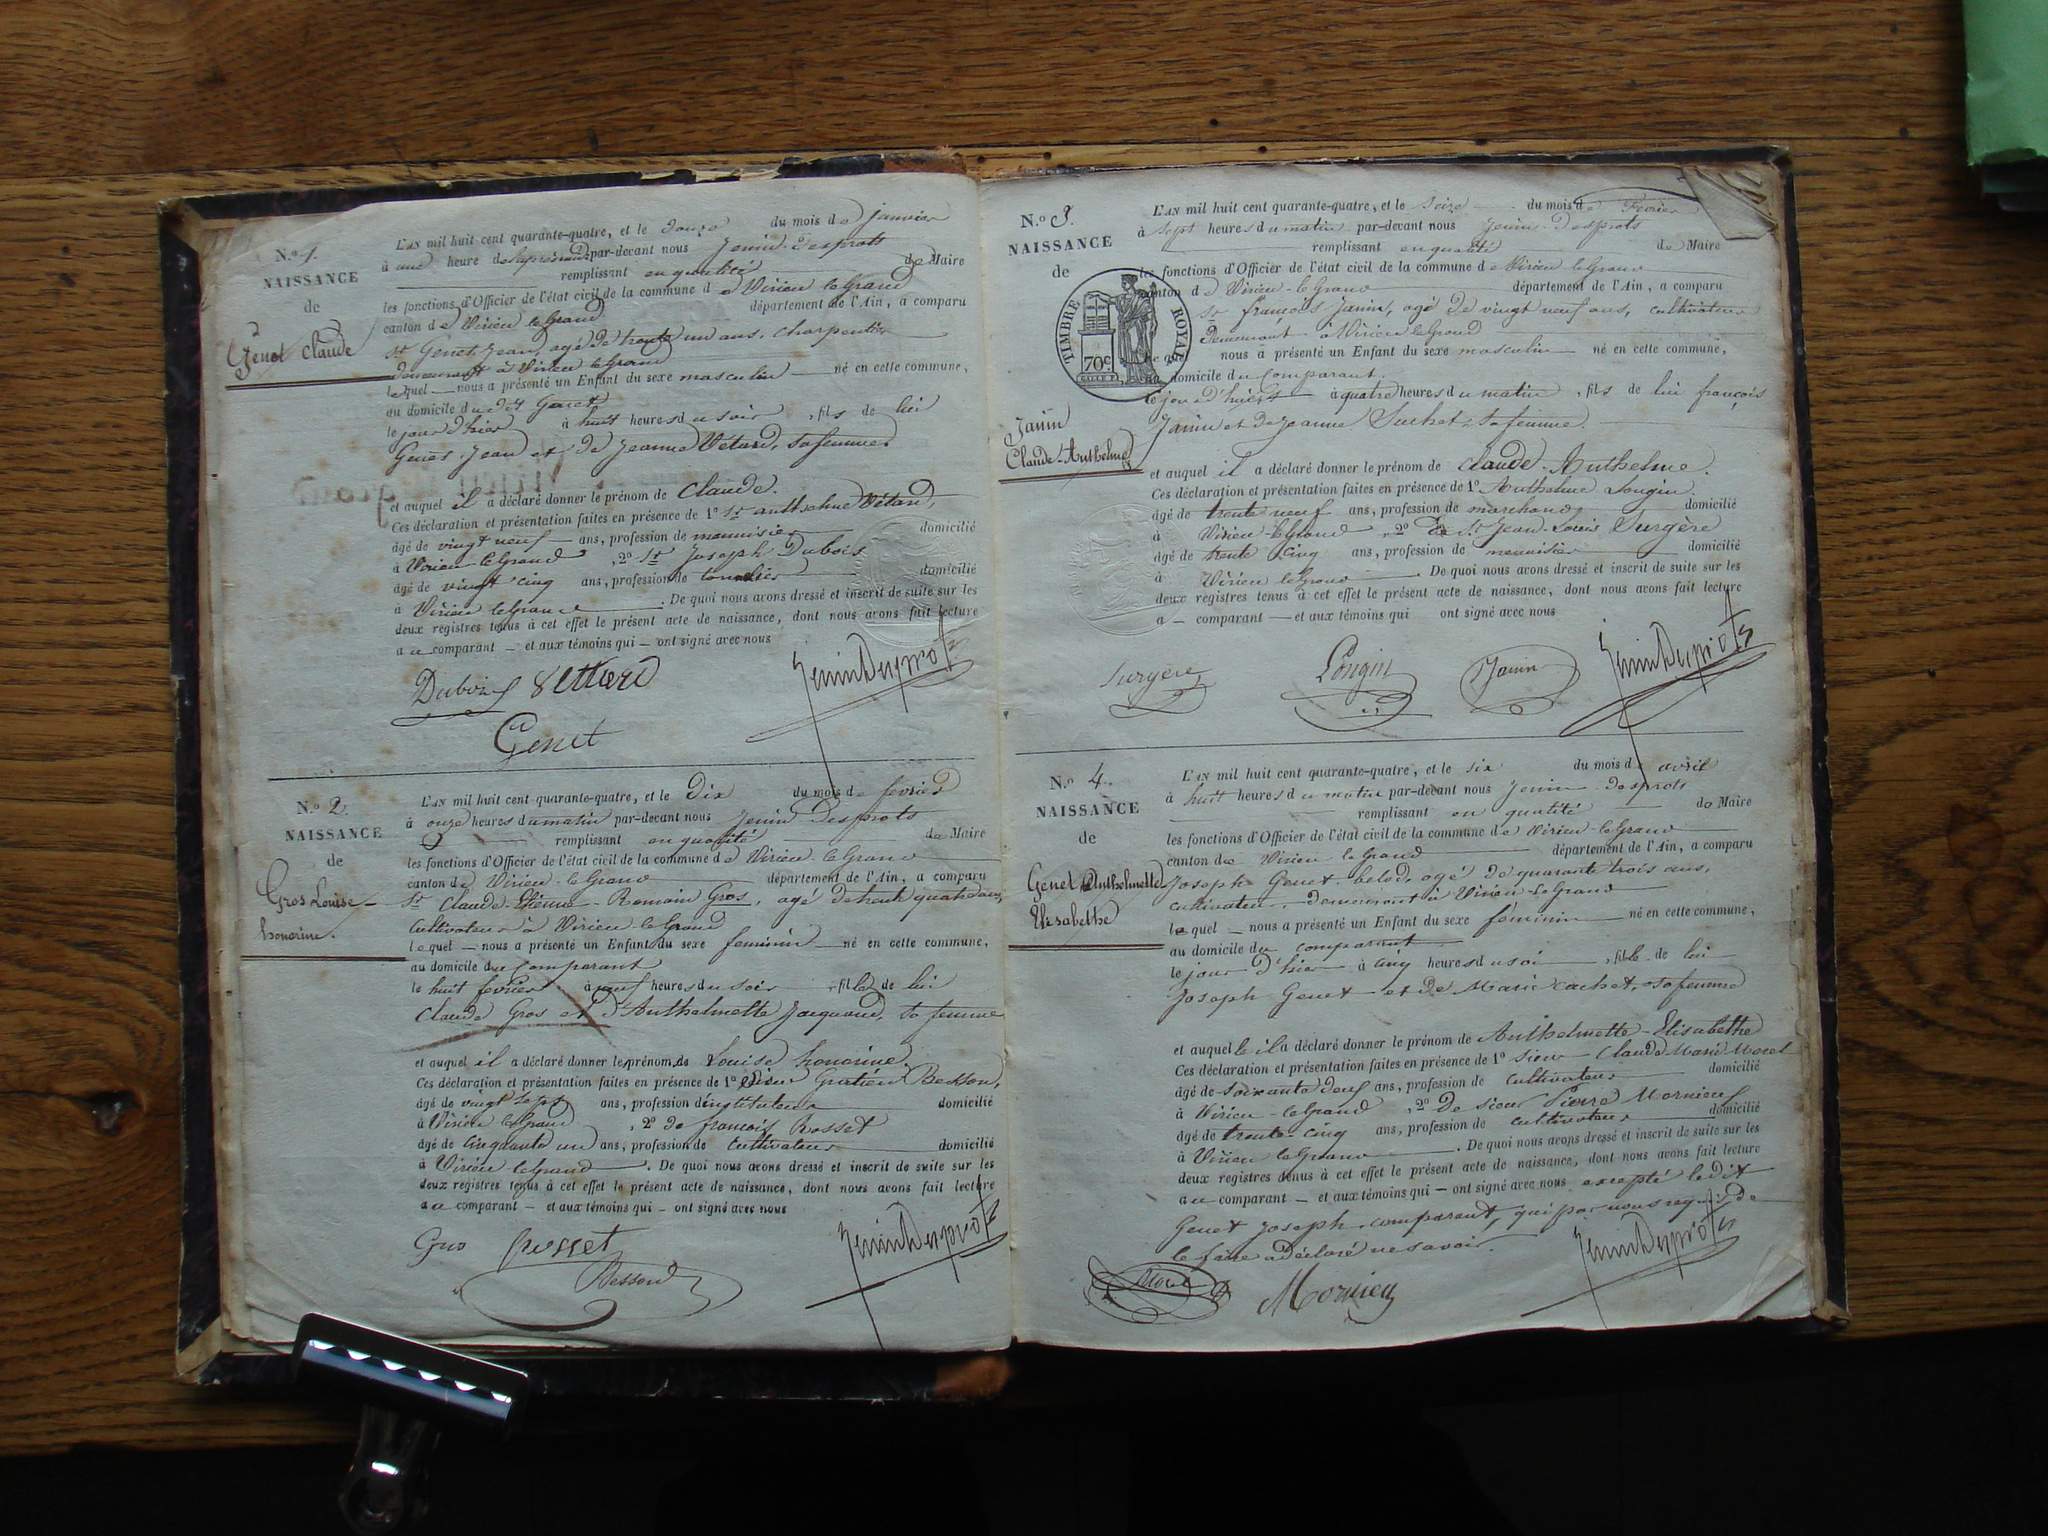 N.o 1.
NAISSANCE
de
Genet Claude
L'AN mil huit cent quarante-quatre, et le douze du mois de janvier
à une heure de par-devant nous Jenin-Desprots
remplissant en qualité de Maire
les fonctions d'Officier de l'état civil de la commune de Virieu le Grand
canton de Virieu le Grand département de l'Ain, a comparu
Sr Genet Jean, agé de trente un ans, charpentier
demeurant à Virieu le Grand
lequel nous a présenté un Enfant du sexe masculin né en cette commune,
au domicile du dit Genet
le jour d'hier à huit heures du soir, fils de lui
Genet Jean et de Jeanne Vétard, sa femme
et auquel il a déclaré donner le prénom de Claude.
Ces déclaration et présentation faites en présence de 1o Sr anthelme Vétard,
âgé de vingt neuf ans, profession de menuisier domicilié
à Virieu le Grand, 2o Sr Joseph Dubois
âgé de vingt cinq ans, profession de tonnelier domicilié
à Virieu le Grand. De quoi nous avons dressé et inscrit de suite sur les
deux registres tenus à cet effet le présent acte de naissance, dont nous avons fait lecture
au comparant et aux témoins qui ont signé avec nous
Dubois Vettard JeninDesprots
Genet
N.o 2.
NAISSANCE
de
Gros Louise-
honorine.
L'AN mil huit cent quarante-quatre, et le Dix du mois de février
à onze heures du matin par-devant nous Jenin Desprots
remplissant en qualité de Maire
les fonctions d'Officier de l'état civil de la commune de Virieu-le Grand
canton de Virieu-le Grand département de l'Ain, a comparu
Sr Claude-Etienne-Romain Gros, agé de trente quatre ans,
cultivateur à Virieu le Grand
lequel nous a présenté un Enfant du sexe feminin né en cette commune,
au domicile du comparant
le huit fevrier à neuf heures du soir, fille de lui
Claude Gros et d'Anthelmette Jacquand, sa femme
et auquel il a déclaré donner le prénom de Louise honorine.
Ces déclaration et présentation faites en présence de 1o sieur Gratien Besson,
âgé de vingt sept ans, profession d'instituteur domicilié
à Virieu le Grand, 2o de françois Rosset
âgé de cinquante un ans, profession de cultivateur domicilié
à Virieu le Grand. De quoi nous avons dressé et inscrit de suite sur les
deux registres tenus à cet effet le présent acte de naissance, dont nous avons fait lecture
au comparant et aux témoins qui ont signé avec nous
Gros Rosset JeninDesprots
Besson
N.o 3.
NAISSANCE
de
TIMBRE ROYAL
70c
Janin
Claude-Anthelme
L'AN mil huit cent quarante-quatre, et le seize du mois de Fevrier
à sept heures du matin par-devant nous Jenin-Desprots
remplissant en qualité de Maire
les fonctions d'Officier de l'état civil de la commune de Virieu le Grand
canton de Virieu-le Grand département de l'Ain, a comparu
Sr françois Janin, agé de vingt neuf ans, cultivateur
demeurant à Virieu le Grand
lequel nous a présenté un Enfant du sexe masculin né en cette commune,
au domicile du comparant.
le jour d'hier à quatre heures du matin, fils de lui françois
Janin et de Jeanne Suchet, sa femme.
et auquel il a déclaré donner le prénom de Claude-Anthelme.
Ces déclaration et présentation faites en présence de 1o Anthelme Longin
âgé de trente neuf ans, profession de marchand domicilié
à Virieu-le Grand, 2o de Sr Jean-Louis Surgère
âgé de trente cinq ans, profession de menuisier domicilié
à Virieu le Grand. De quoi nous avons dressé et inscrit de suite sur les
deux registres tenus à cet effet le présent acte de naissance, dont nous avons fait lecture
a comparant et aux témoins qui ont signé avec nous
Surgère Longin Janin JeninDesprots
N.o 4.
NAISSANCE
de
Genet Anthelmette
Elisabethe
L'AN mil huit cent quarante-quatre, et le six du mois de avril
à huit heures du matin par-devant nous Jenin-Desprots
remplissant en qualité de Maire
les fonctions d'Officier de l'état civil de la commune de Virieu-le Grand
canton de Virieu le Grand département de l'Ain, a comparu
Joseph Genet agé de quarante trois ans,
cultivateur, demeurant à Virieu-le Grand
lequel nous a présenté un Enfant du sexe féminin né en cette commune,
au domicile du comparant
le jour d'hier à cinq heures du soir, fille de lui
Joseph Genet et de Marie Cachet, sa femme
et auquelle il a déclaré donner le prénom de Anthelmette-Elisabethe
Ces déclaration et présentation faites en présence de 1o sieur Claude Marie Morel
âgé de soixante deux ans, profession de cultivateur domicilié
à Virieu-le Grand, 2o De sieur Pierre Mornieu
âgé de trente-cinq ans, profession de cultivateur domicilié
à Virieu le Grand. De quoi nous avons dressé et inscrit de suite sur les
deux registres tenus à cet effet le présent acte de naissance, dont nous avons fait lecture
au comparant et aux témoins qui ont signé avec nous excepté ledit
Genet Joseph, comparant, qui par nous requis de
le faire a déclaré ne savoir.
Morel Mornieu JeninDesprots